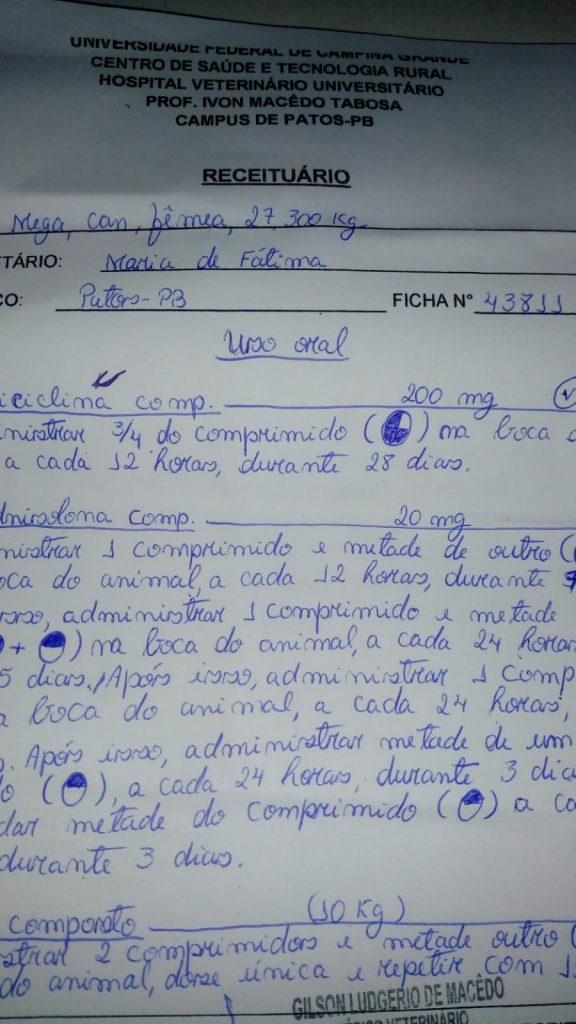 UNIVERSIDADE FEDERAL DE CAMPINA GRANDE
CENTRO DE SAÚDE E TECNOLOGIA RURAL
HOSPITAL VETERINÁRIO UNIVERSITÁRIO
PROF. IVON MACÊDO TABOSA
CAMPUS DE PATOS-PB
RECEITUÁRIO
Mega, can, fêmea, 27,300 Kg
TÁRIO: Maria de Fátima
ÇO: Patos-PB FICHA N° 43811
Uso oral
iciclina comp. 200 mg
nistrar 3/4 do comprimido ( ) na boca
a cada 12 horas, durante 28 dias.
dnisolona comp. 20 mg
nistrar 1 comprimido e metade de outro (
oca do animal, a cada 12 horas, durante
isso, administrar 1 comprimido e metade
+ ) na boca do animal, a cada 24 horas
5 dias. Após isso, administrar 1 comp
a boca do animal, a cada 24 horas,
. Após isso, administrar metade de um
do ( ), a cada 24 horas, durante 3 dia
dar metade do comprimido ( ) a ca
durante 3 dias.
composto (10 Kg)
strar 2 comprimidos e metade outro (
do animal, dose única e repetir com 1
GILSON LUDGERIO DE MACÊDO
MÉDICO VETERINÁRIO